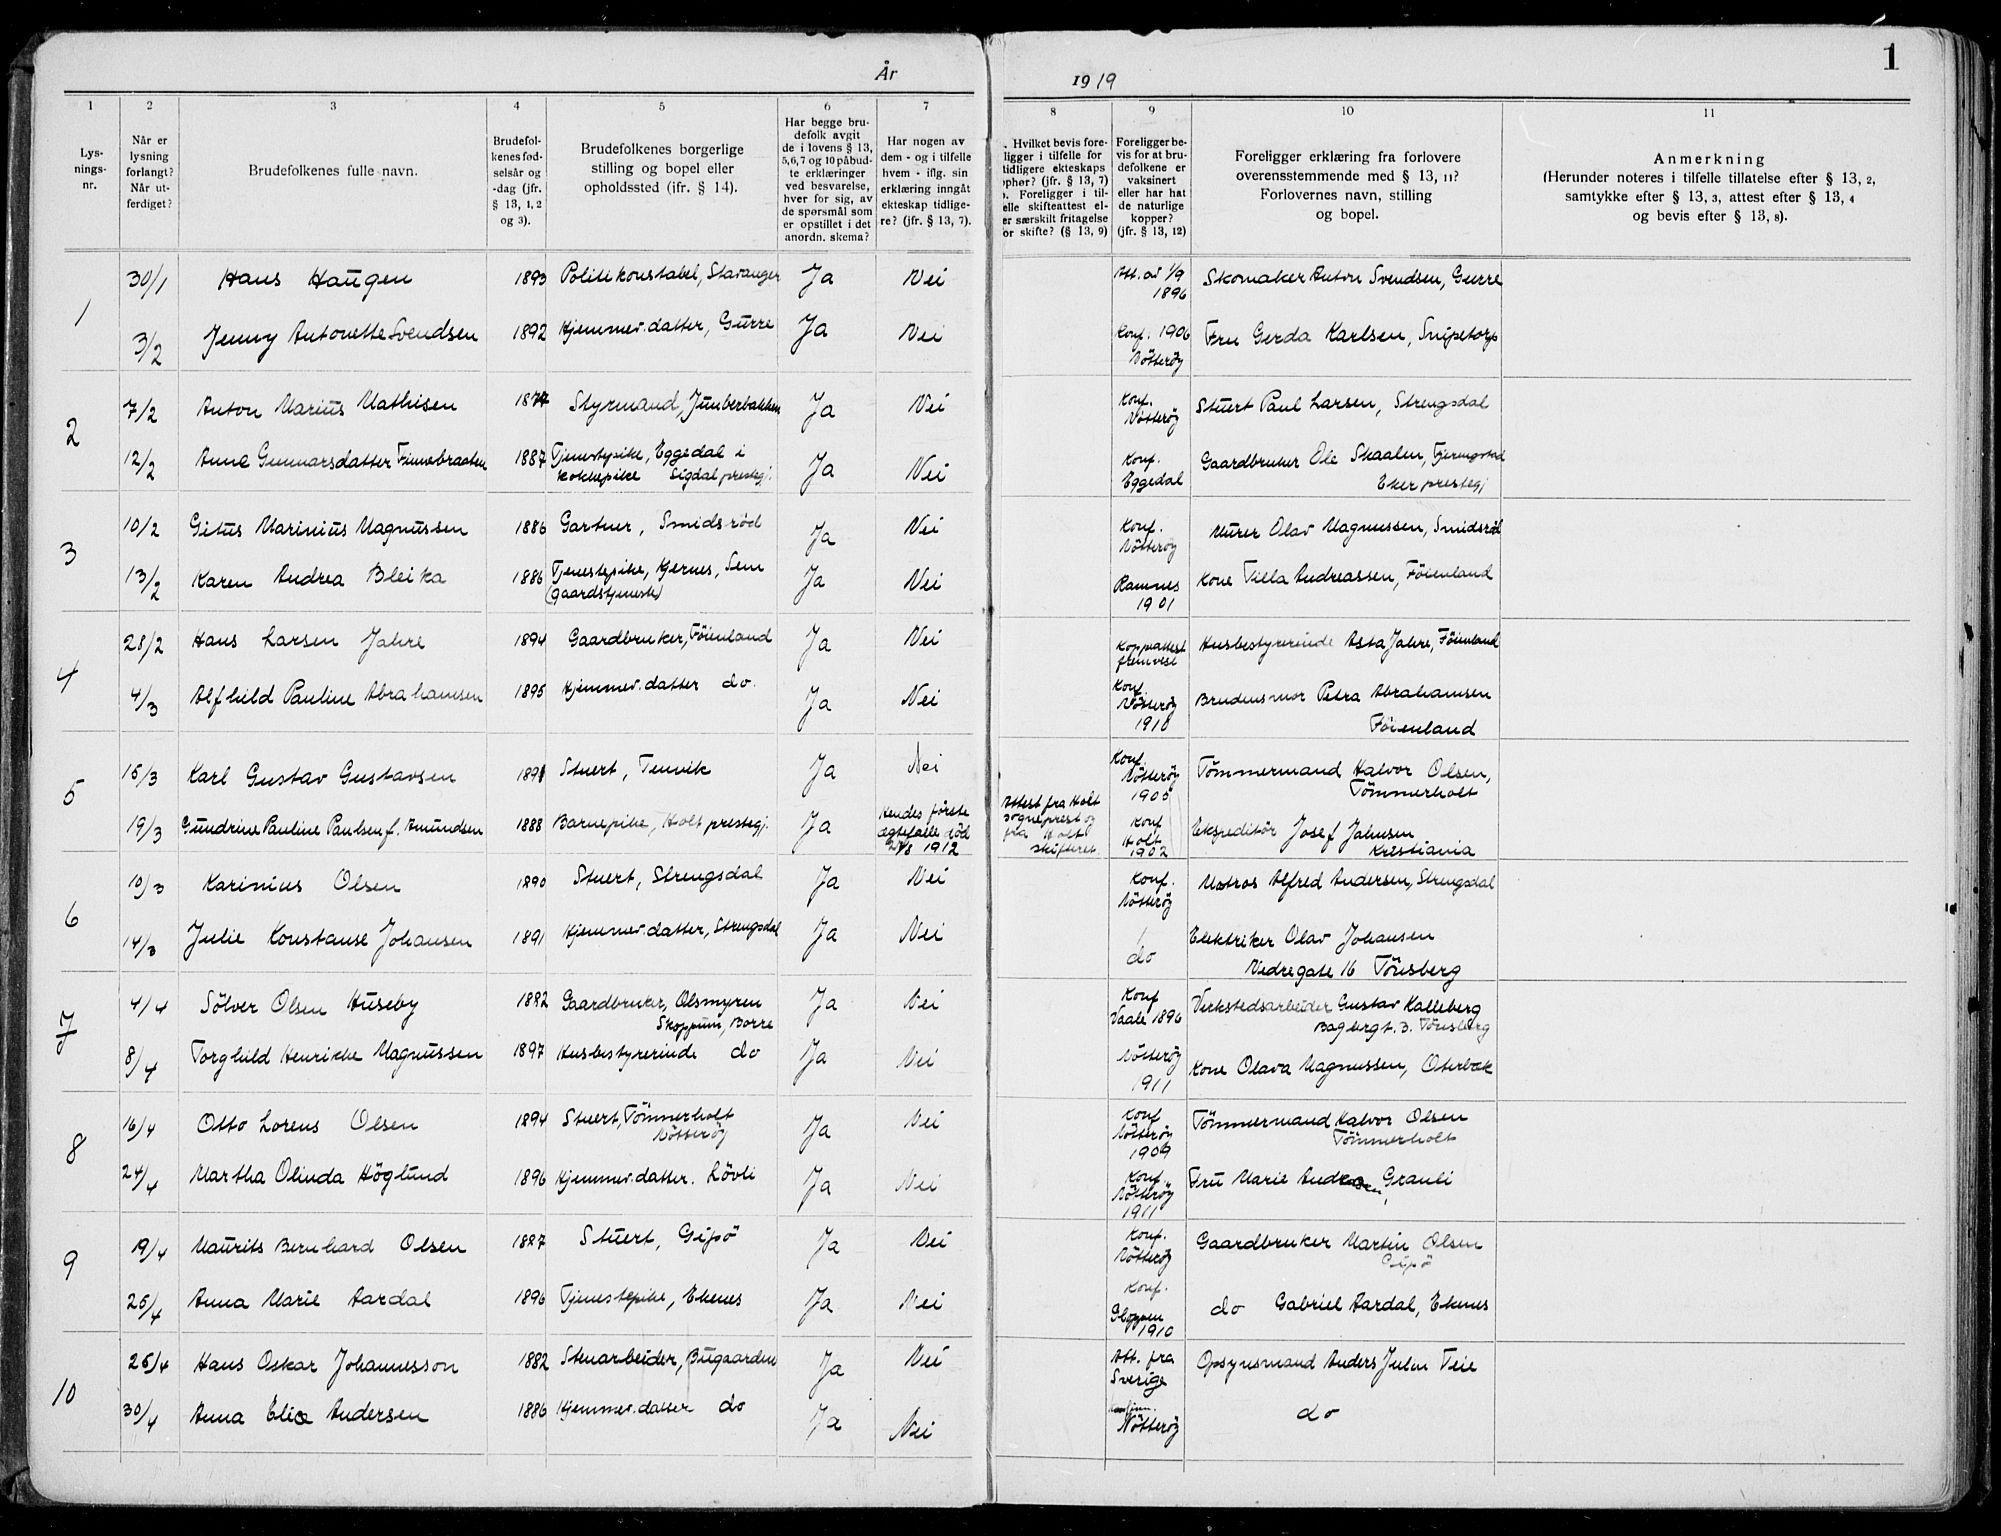 År 1919
1
1 2 3 4 5 6 7 8 9 10 11
Lys-
nings-
nr.
Når er
lysning
forlangt?
Når ut-
ferdiget?
Brudefolkenes fulle navn.
Brudefol-
kenes fød-
selsår og
-dag (jfr.
§ 13, 1, 2
og 3).
Brudefolkenes borgerlige
stilling og bopel eller
opholdssted (ifr. § 14).
Har begge bru-
defolk avgit
de i lovens § 13,
5, 6, 7 og 10 påbud-
te erklæringer
ved besvarelse,
hver for sig, av
de spørsmål som
er opstillet i det
anordn. skema?
Har nogen av
dem - og i tilfelle
hvem - iflg. sin
erklæring inngått
ekteskap tidlige-
re? (jfr. § 13, 7).
. Hvilket bevis fore-
ligger i tilfelle for
tidligere ekteskaps
ophør? (jfr. § 13, 7)
. Foreligger i til-
elle skifteattest el-
er særskilt fritagelse
for skifte? (§ 13, 9)
Foreligger be-
vis for at bru-
defolkene er
vaksinert
eller har hat
de naturlige
kopper?
(jfr. § 13, 12)
Foreligger erklæring fra forlovere
overensstemmende med § 13, 11?
Forlovernes navn, stilling
og bopel.
Anmerkning
(Herunder noteres i tilfelle tillatelse efter § 13, 2,
samtykke efter § 13, 3, attest efter § 13, 4
og bevis efter § 13, 8).
1
30/1 Hans Haugen 1893 Politikonstabel, Stavanger Ja Nei Att. av 1/9 1896 Skomaker Anton Svendsen, Gurre
3/2 Jenny Antonette Svendsen 1892 Hjemmev. datter, Gurre Ja Nei Konf. 1906 Nötteröy Fru Gerda Karlsen, Snipetorp
2
7/2 Anton Marius Mathisen Styrmand, Ja Nei Konf. Nötteröy Stuert Paul Larsen, Strengsdal
12/2 Anna Gunnarsdatter Finnebraaten 1887 Tjenestepike, Eggedal i
kokkepike Sigdal prestegj. Ja Nei Konf. Eggedal Gaardbruker Ole Skaalen,
Eker prestegj
3
10/2 Gitus Marinius Magnussen 1886 Gartner, Smidsröd Ja Nei Konf. Nötteröy Murer Olav Magnussen, Smidsröd
13/2 Karen Andrea Bleika 1886 Tjenestepike, Kjernes, Sem
(gaardstjeneste) Ja Nei Ramnes 1901 Kone Tilla Andreassen, Föienland
4
28/2 Hans Larsen Jahre 1894 Gaardbruker, Föienland Ja Nei Koppattest
fremvist Husbestyrerinde Asta Jahre, Föienland
4/3 Alfhild Pauline Abrahamsen 1895 Hjemmev. datter do. Ja Nei Konf. Nötteröy 1910 Brudens mor Petra Abrahamsen
Föienland
5
15/3 Karl Gustav Gustavsen 1891 Stuert, Tenvik Ja Nei Konf. Nötteröy 1905 Tömmermand Halvor Olsen,
Tömmerholt
19/3 Gundrine Pauline Paulsen f. Amundsen 1888 Barnepike, Holt prestegj. Ja Hendes förste
ægtefælle död
1912 Attest fra Holt
sogneprest og
fra Holt
skifteret. Konf Holt 1902 Ekspeditör Josef Jahnsen
Kristiania
6
10/3 Karinius Olsen 1890 Stuert, Strengsdal Ja Nei Konf. Nötteröy Matros Alfred Andersen, Strengsdal
14/3 Julie Konstanse Johansen 1891 Hjemmev. datter, Strengsdal Ja Nei do Elektriker Olav Johansen
Nedregate 16 Tönsberg
7
4/4 Sölver Olsen Huseby 1882 Gaardbruker, Olsmyren
Skoppum, Borre Ja Nei Konf Vaale 1896 Verkstedsarbeider Gustav Kalleberg
Bagbergt. 3. Tönsberg
8/4 Torghild Henrikke Magnussen 1897 Husbestyrerinde do Ja Nei Nötteröy 1911 Kone Olava Magnussen, Oterbæk
8
16/4 Otto Lorens Olsen 1894 Stuert, Tömmerholt
Nötteröy Ja Nei Konf Nötteröy 1909 Tömmermand Halvor Olsen
Tömmerholt
24/4 Martha Olinda Höglund 1896 Hjemmev. datter. Lövli Ja Nei Konf. Nötteröy 1911 Fru Marie Grauli
9
19/4 Maurits Bernhard Olsen 1887 Stuert, Gipö Ja Nei Konf. Nötteröy Gaardbruker Martin Olsen
Gipö
25/4 Anna Marie Aardal 1896 Tjenestepike, Ekenes Ja Nei Konf. Gloppen 1910 do Gabriel Aardal, Ekenes
10
25/4 Hans Oskar Johannesson 1882 Stenarbeider, Bugaarden Ja Nei Att. fra Sverige Opsynsmand Anders Julin Teie
30/4 Anna Elise Andersen 1886 Hjemmev. datter do Ja Nei Nötteröy do